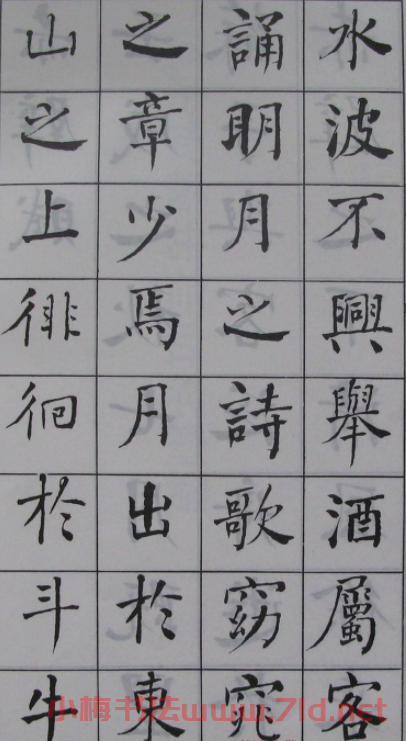 水波不興舉酒屬客
誦明月之詩歌窈窕
之章少焉月出於東
山之上徘徊於斗牛
小梅书法www.7ld.net